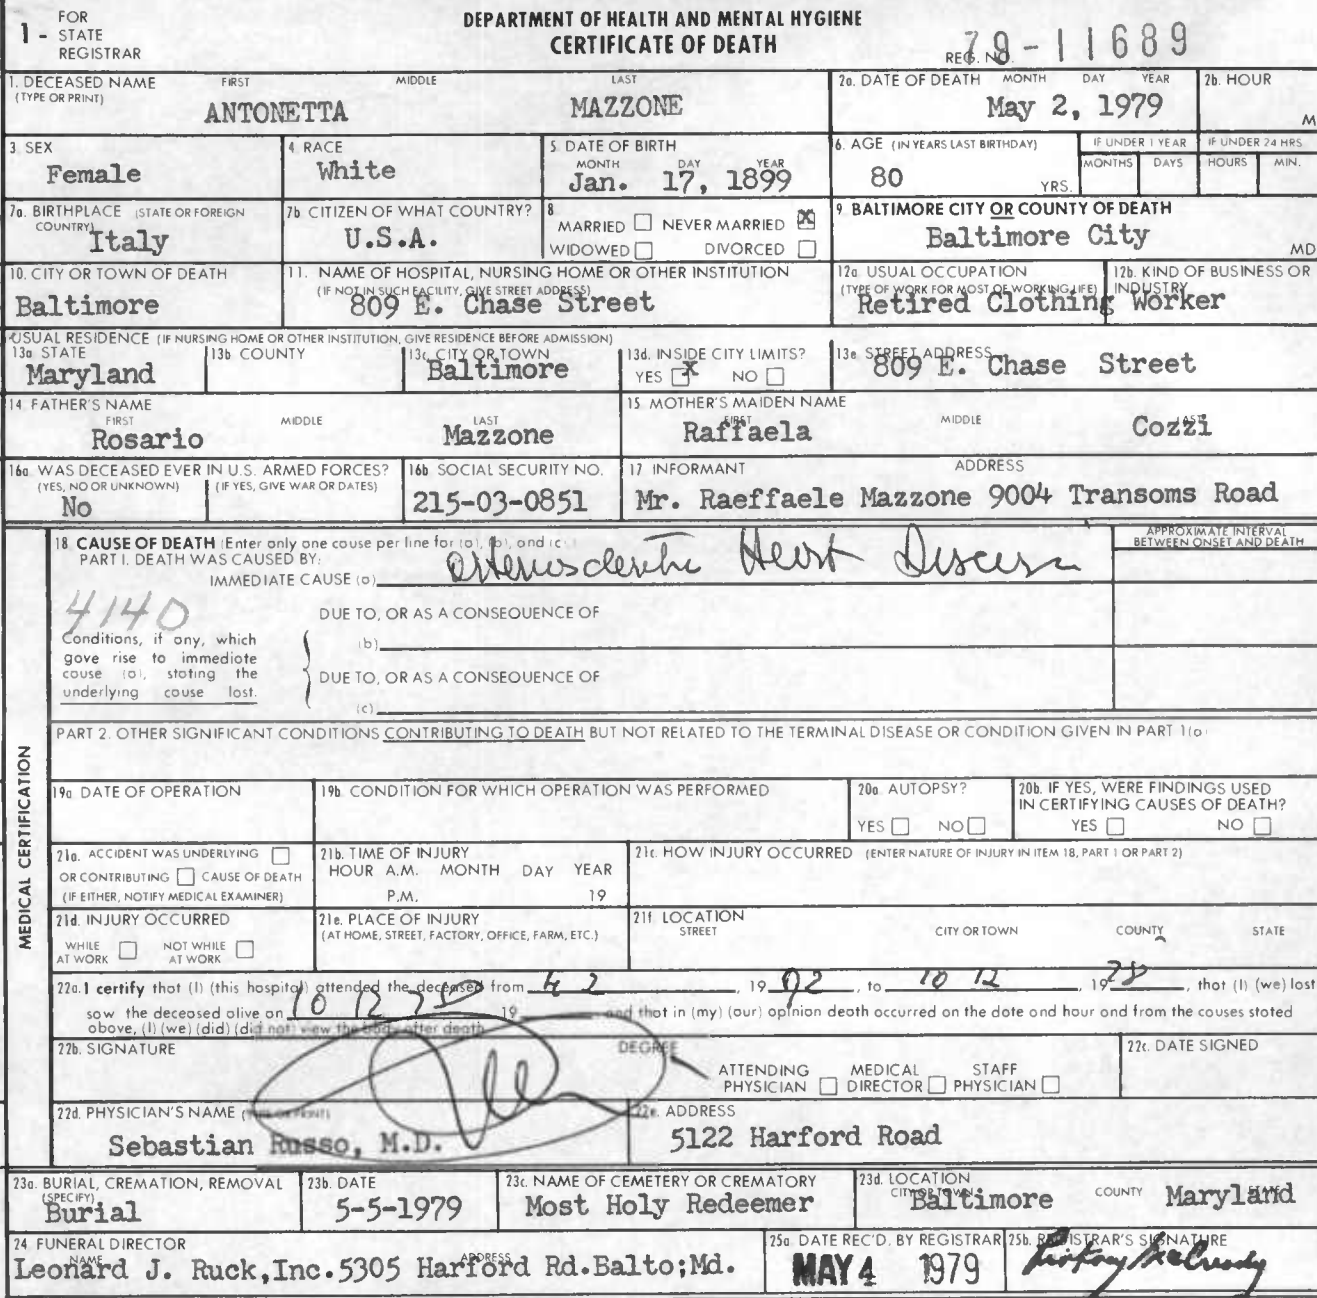 1 - FOR STATE REGISTRAR
DEPARTMENT OF HEALTH AND MENTAL HYGIENE
CERTIFICATE OF DEATH
REG. NO. 79-11689
1. DECEASED NAME (TYPE OR PRINT) FIRST MIDDLE LAST
ANTONETTA MAZZONE
2a. DATE OF DEATH MONTH DAY YEAR
May 2, 1979
2b. HOUR
M
3. SEX
Female
4. RACE
White
5. DATE OF BIRTH
MONTH DAY YEAR
Jan. 17, 1899
6. AGE (IN YEARS LAST BIRTHDAY)
80 YRS.
IF UNDER 1 YEAR
MONTHS DAYS
IF UNDER 24 HRS
HOURS MIN.
7a. BIRTHPLACE (STATE OR FOREIGN COUNTRY)
Italy
7b CITIZEN OF WHAT COUNTRY?
U.S.A.
8
MARRIED ☐ NEVER MARRIED ☒
WIDOWED ☐ DIVORCED ☐
9. BALTIMORE CITY OR COUNTY OF DEATH
Baltimore City
MD
10. CITY OR TOWN OF DEATH
Baltimore
11. NAME OF HOSPITAL, NURSING HOME OR OTHER INSTITUTION
(IF NOT IN SUCH FACILITY, GIVE STREET ADDRESS)
809 E. Chase Street
12a USUAL OCCUPATION
(TYPE OF WORK FOR MOST OF WORKING LIFE)
12b. KIND OF BUSINESS OR INDUSTRY
Retired Clothing Worker
USUAL RESIDENCE (IF NURSING HOME OR OTHER INSTITUTION, GIVE RESIDENCE BEFORE ADMISSION)
13a STATE
Maryland
13b COUNTY
13c. CITY OR TOWN
Baltimore
13d. INSIDE CITY LIMITS?
YES ☒ NO ☐
13e STREET ADDRESS
809 E. Chase Street
14 FATHER'S NAME
FIRST MIDDLE LAST
Rosario Mazzone
15 MOTHER'S MAIDEN NAME
FIRST MIDDLE LAST
Raffaela Cozzi
16a WAS DECEASED EVER IN U.S. ARMED FORCES?
(YES, NO OR UNKNOWN) (IF YES, GIVE WAR OR DATES)
No
16b SOCIAL SECURITY NO.
215-03-0851
17 INFORMANT ADDRESS
Mr. Raeffaele Mazzone 9004 Transoms Road
18. CAUSE OF DEATH (Enter only one cause per line for (a), (b), and (c).)
PART I. DEATH WAS CAUSED BY:
IMMEDIATE CAUSE (a) Heart Disease
APPROXIMATE INTERVAL
BETWEEN ONSET AND DEATH
4140
Conditions, if any, which gave rise to immediate cause (a), stating the underlying cause last.
DUE TO, OR AS A CONSEQUENCE OF
(b)
DUE TO, OR AS A CONSEQUENCE OF
(c)
PART 2. OTHER SIGNIFICANT CONDITIONS CONTRIBUTING TO DEATH BUT NOT RELATED TO THE TERMINAL DISEASE OR CONDITION GIVEN IN PART 1(a)
MEDICAL CERTIFICATION
19a DATE OF OPERATION
19b. CONDITION FOR WHICH OPERATION WAS PERFORMED
20a. AUTOPSY?
YES ☐ NO ☐
20b. IF YES, WERE FINDINGS USED
IN CERTIFYING CAUSES OF DEATH?
YES ☐ NO ☐
21a. ACCIDENT WAS UNDERLYING ☐
OR CONTRIBUTING ☐ CAUSE OF DEATH
(IF EITHER, NOTIFY MEDICAL EXAMINER)
21b. TIME OF INJURY
HOUR A.M. MONTH DAY YEAR
P.M. 19
21c. HOW INJURY OCCURRED (ENTER NATURE OF INJURY IN ITEM 18, PART 1 OR PART 2)
21d. INJURY OCCURRED
WHILE AT WORK ☐ NOT WHILE AT WORK ☐
21e. PLACE OF INJURY
(AT HOME, STREET, FACTORY, OFFICE, FARM, ETC.)
21f. LOCATION
STREET CITY OR TOWN COUNTY STATE
22a. I certify that (I) (this hospital) attended the deceased from , 19 , to 10 12 , 1978, that (I) (we) last
saw the deceased alive on 10 12 19 and that in (my) (our) opinion death occurred on the date and hour and from the causes stated
above, (I) (we) (did) (did not) view the body after death
22b. SIGNATURE
DEGREE
ATTENDING PHYSICIAN ☐ MEDICAL DIRECTOR ☐ STAFF PHYSICIAN ☐
22c. DATE SIGNED
22d. PHYSICIAN'S NAME (TYPE OR PRINT)
Sebastian Russo, M.D.
22e. ADDRESS
5122 Harford Road
23a. BURIAL, CREMATION, REMOVAL
(SPECIFY)
Burial
23b. DATE
5-5-1979
23c. NAME OF CEMETERY OR CREMATORY
Most Holy Redeemer
23d. LOCATION
CITY OR TOWN COUNTY STATE
Baltimore Maryland
24 FUNERAL DIRECTOR
NAME ADDRESS
Leonard J. Ruck,Inc.5305 Harford Rd.Balto;Md.
25a. DATE REC'D. BY REGISTRAR
MAY 4 1979
25b. REGISTRAR'S SIGNATURE